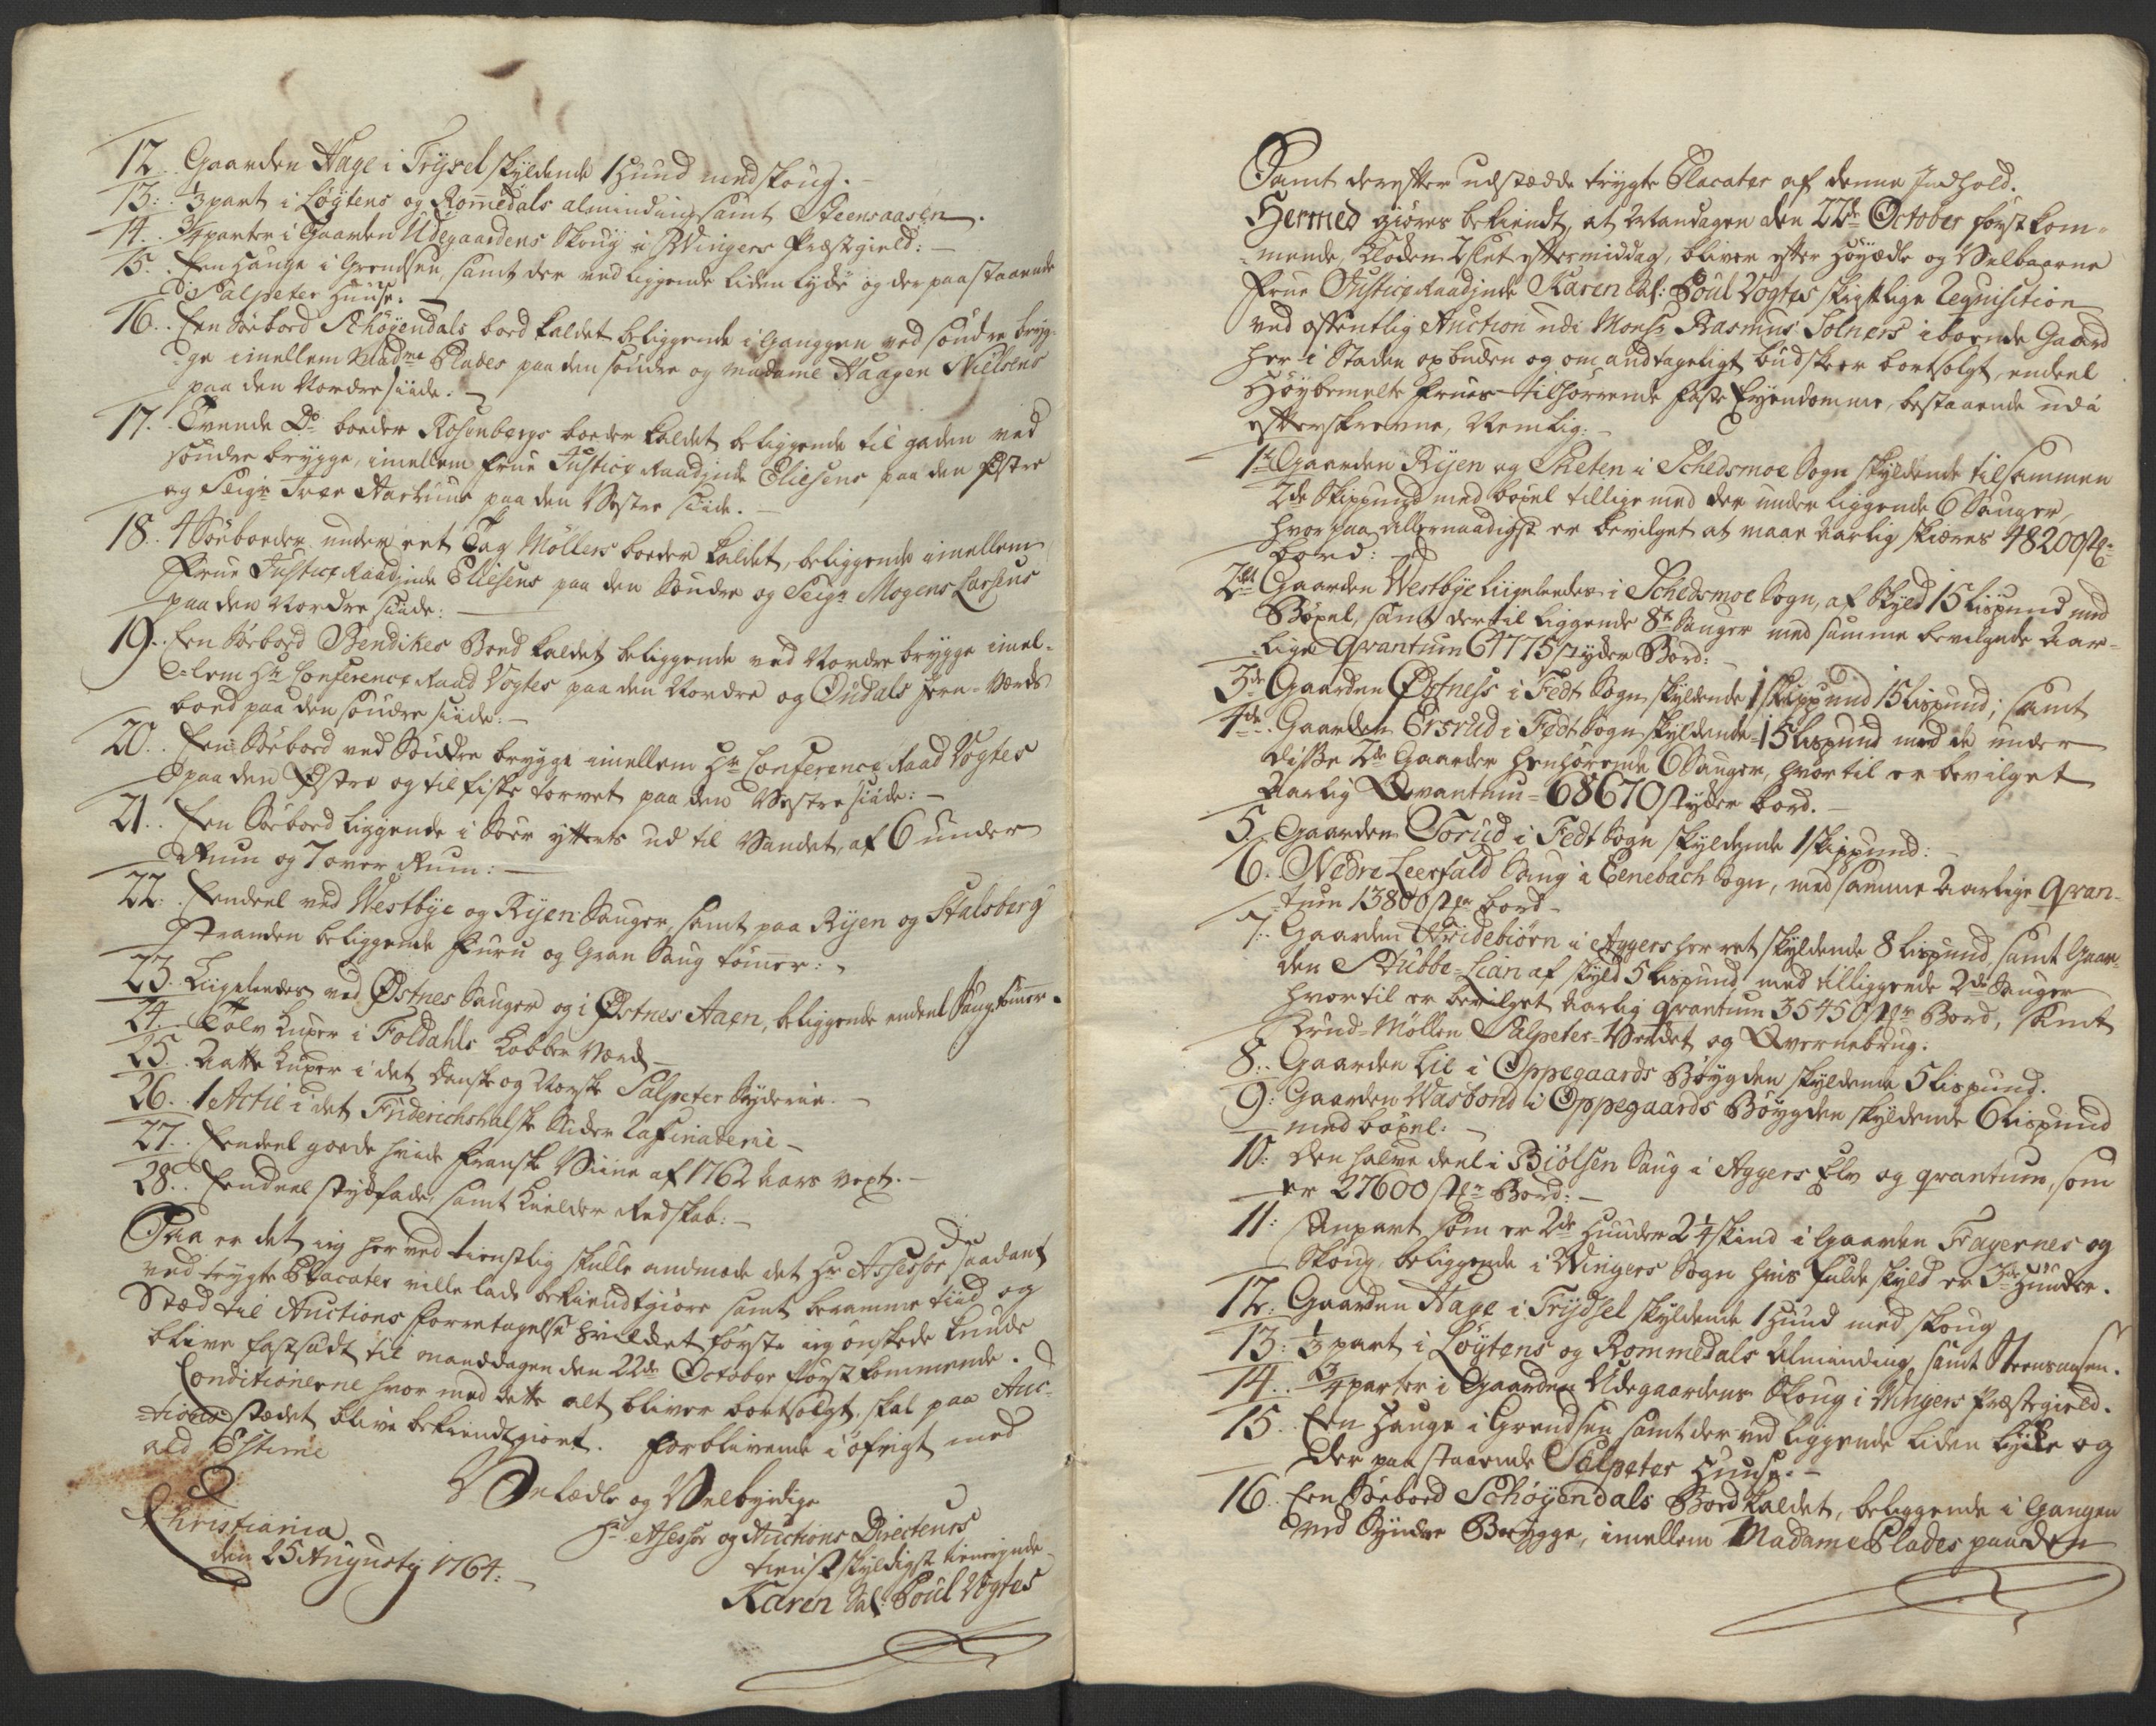 12. Gaarden Hage i Trysel skyldende 1 Huud med skoug. –
13. ⅓ part i Løytens og Rom̄edals alminding samt Steensaasen.
14. ¾ parter i Gaarden Udegaardens Skoug i Wingers Præstegield: –
15. Een Hauge i Grendsen, samt der ved liggende liden Lyde og der paa staaende
Salpeter Huuse. –
16. Een Søeboed Schøyendals boed kaldet beliggende i Ganggen ved søndre bryg-
ge imellem Mad.me Plades paa den søndre og Madame Haagen Nielsens
paa den Nordre siide. –
17. Tvende Do boeder Rosenbergs boeder kaldet beliggende til gaden ved
søndre brygge, imellem Frue Justice Raadinde Eliesens paa den Østre
og Seigr Iver Aarhuus paa den Vestre siide. –
18. 4 Søeboeder under eet Tag Möllers boeder kaldet, beliggende imellem
Frue Justice Raadinde Eliesens paa den Søndre og Seigr Mogens Larsens
paa den Nordre siide: –
19. Een Søeboed Bendikes Boed kaldet beliggende ved Nordre brygge imel-
lem Hr Conference Raad Vogtes paa den Nordre og Oudals Jern-Værks
boed paa den søndre siide: –
20. Een Søeboed ved Søndre brygge imellem Hr Conference Raad Vogtes
paa den Østre og til fiske torvet paa den Vestre siide: –
21. Een Søeboed liggende i Søer ytterst ud til Vandet, af 6 under
Rum og 7 over Rum: –
22. Eendeel ved Westbye og Ryen Sauger, samt paa Ryen og Stalsberg
Stranden beliggende Furu og Gran Saug tøm̄er: –
23. Ligeledes ved Østnes Sauger og i Østnes Aaen, beliggende endeel Saugtøm̄er.
24. Tolv Kuxer i Foldahls Kobber Værk –
25. Aatte Kuxer i det Danske og Norske Salpeter Syderie. –
26. 1 Actie i det Friderichshalske Suker Rafinaderie –
27. Eendeel goede hvide Franske Viine af 1762 Aars vext. –
28. Eendeel stykfade, samt Kielder Redskab: –
Saa er det jeg herved tienstlig skulle anmode det Hr Assessor saadant
ved trygte Placater ville lade bekiendtgiøre samt beramme tiid og
Stæd til Auctions Forretagelse hvilcket første jeg ønskede kunde
blive fastsadt til manddagen den 22de October først kommende.
Conditionerne hvor med dette alt bliver bortsolgt, skal paa Auc-
tions stædet blive bekiendtgiort. Forblivende i øfrigt med
ald Estime
Velædle og Velbyrdige
Hr Assessor og Auctions Directeurs
tienstskyldigst tienerinde
Karen Sal: Poul Vogtes
Christiania
den 25 Augusty 1764. –
Samt derefter udstædde trygte Placater af denne Indhold.
Hermed giøres bekiendt, at Mandagen den 22de October først kom-
mende, Kloden 2 slet eftermiddag, bliver efter Høyædle og Velbaarne
Frue Justice Raadinde Karen Sal: Poul Vogtes skriftlige Requisition
ved offentlig Auction udi Monsr Rasmus Solners iboende Gaard
her i Staden opbuden og om andtageligt bud skeer bortsolgt, endeel
Høybemelte Frues tilhørende faste Eyendomme, bestaaende udi
efterskrevne, Nemlig. –
1te Gaarden Ryen og Sketen i Schedsmoe Sogn skyldende tilsammen
2de Skippund med boxel tillige med der under liggende 6 Sauger,
hvor paa allernaadigst er bevilget at maae aarlig skiæres 48200 st.
Bord: –
2den Gaarden Westbye Ligeledes i Schedsmoe Sogn, af Skyld 15 Lispund med
Boxel, samt dertil liggende 8te Sauger med samme bevilgede Aar-
lige Qvantum 64775 styker Bord:
3die Gaarden Østness i Fedt Sogn skyldende 1 Skippund 15 Lispund; samt
4de Gaarden Ersrud i Fedt Sogn skyldende 15 Lispund med de under
disse 2de Gaarder henhørende 6 Sauger, hvor til er bevilget
Aarlig Qvantum 68670 styker bord. –
5. Gaarden Torud i Fedt Sogn skyldende 1 skippund:
6. Nedre Leerfald Saug i Eenebach Sogn, med samme Aarlige Qvan-
tum 13800 stkr bord –
7. Gaarden Hvidebiørn i Aggers herret skyldende 8 Lispund, samt Gaar-
den Stubbe-Lian af skyld 5 Lispund med tilliggende 2de Sauger
hvortil er bevilget Aarlig qvantum 35450 stkr Bord, samt
Krud-Møllen Salpeter-Værket og Qvernebrug:
8. Gaarden Lie i Oppegaards Bøygden skyldende 5 Lispund.
9. Gaarden Wasbond i Oppegaards Bøygden skyldende 6 Lispund
med boxel: –
10. Den halve deel i Biølsen Saug i Aggers Elv og qvantum, som
er 27600 stkr Bord: –
11. Anpart som er 2de Huuder 2¼ skind i Gaarden Fagernes og
Skoug, beliggende i Wingers Sogn hvis fulde skyld er 3de Huuder.
12. Gaarden Hage i Trydsel skyldende 1 Huud med skoug
13. ⅓ part i Løytens og Rommedals Alminding samt Steensaasen.
14. ¾ parter i Gaarden Udegaardens Skoug i Wingers Præstegield.
15. Een Hauge i Grendsen samt der ved liggende liden Lykke og
der paa staaende Salpeter Huuse. –
16. Een Søeboed Schøyendals Boed kaldet, beliggende i Gangen
ved Syndre Brygge, imellem Madame Plades paa den